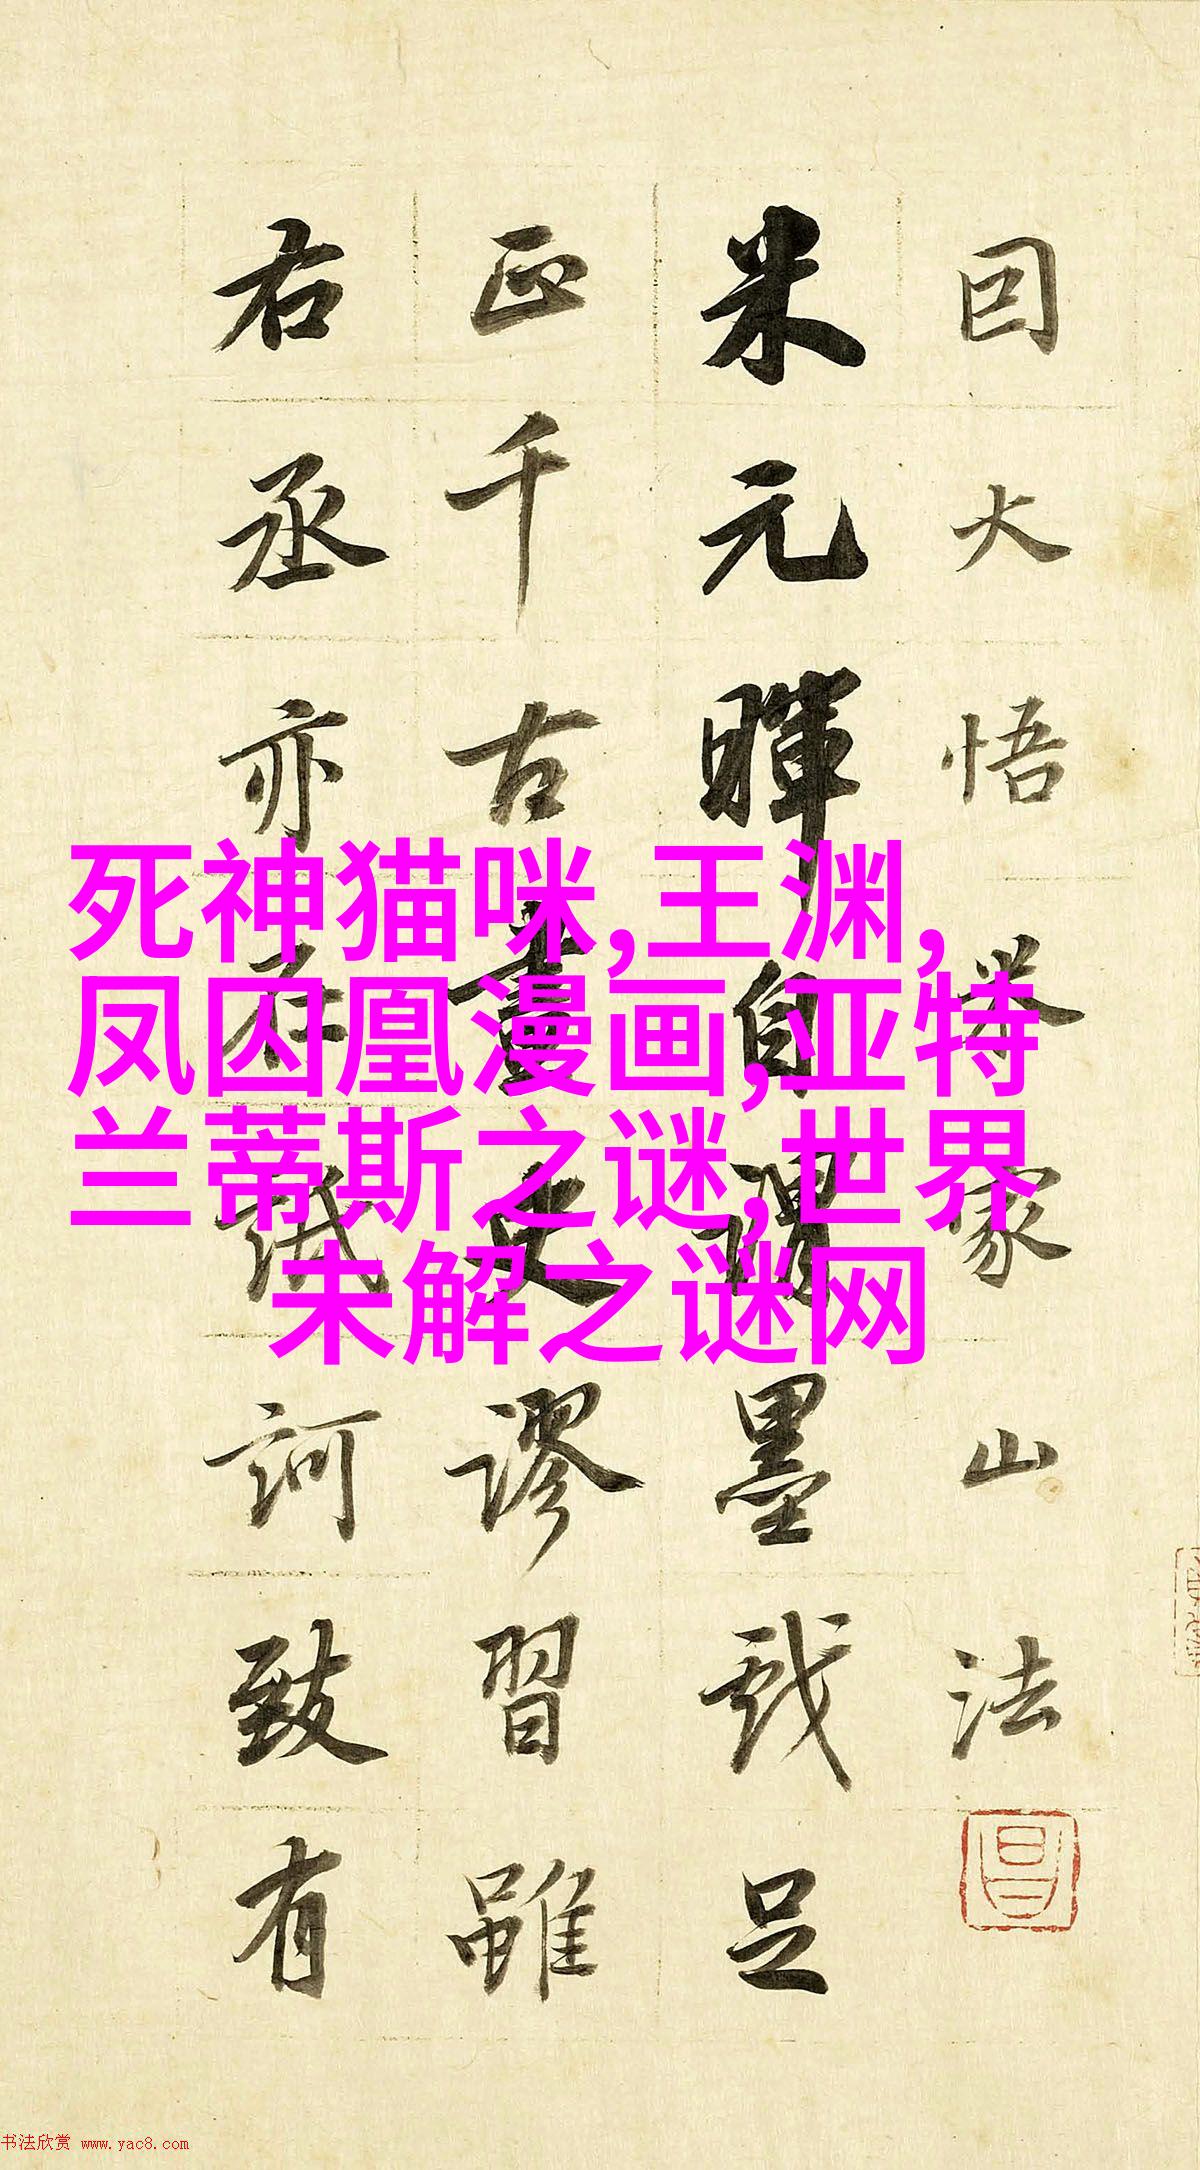 因大悟黍家山法
米元暉自謂墨戲足
正千古畫史謬習雖
右丞亦在詆訶致有
死神猫咪,王渊,
凤囚凰漫画,亚特
兰蒂斯之谜,世界
未解之谜网
书法欣赏 www.yac8.com